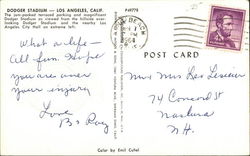 DODGER STADIUM — LOS ANGELES, CALIF.
The jam-packed terraced parking and magnificent
Dodger Stadium as viewed from the hillside over-
looking Dodger Stadium and the nearby Los
Angeles City Hall on extreme left.
P49770
POST CARD
BEACH
1964
What a life -
All fun. Hope
you are over
your injury
Love
Roy
Mr & Mrs Geo
74 Concord St
Nashua
N.H.
Color by Emil Cuhel